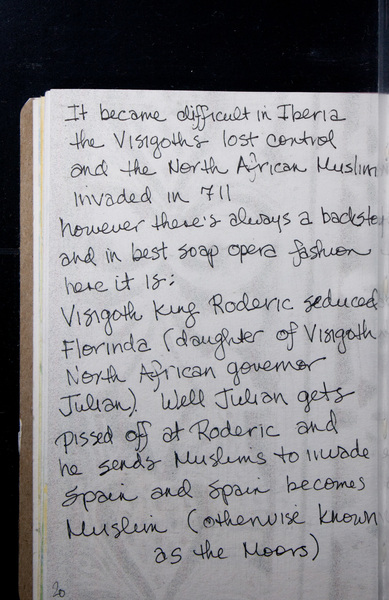 It became difficult in Iberia
the Visigoths lost control
and the North African Muslim
invaded in 711
however there's always a backsto
and in best soap opera fashion
here it is:
Visigoth King Roderic seduced
Florinda (daughter of Visigoth
North African governor
Julian). Well Julian gets
pissed off at Roderic and
he sends Muslims to invade
Spain and Spain becomes
Muslim (otherwise known
as the Moors)
20